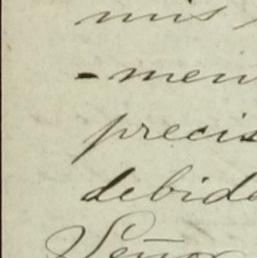 mis
-men
precis
debid
Señor